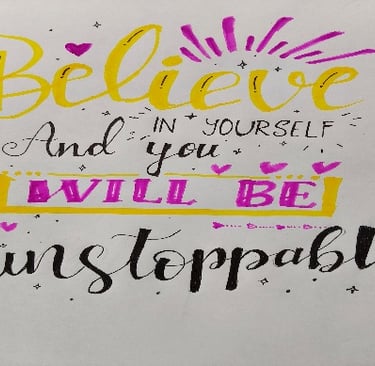 Believe
IN YOURSELF
And you
WILL BE
unstoppabl